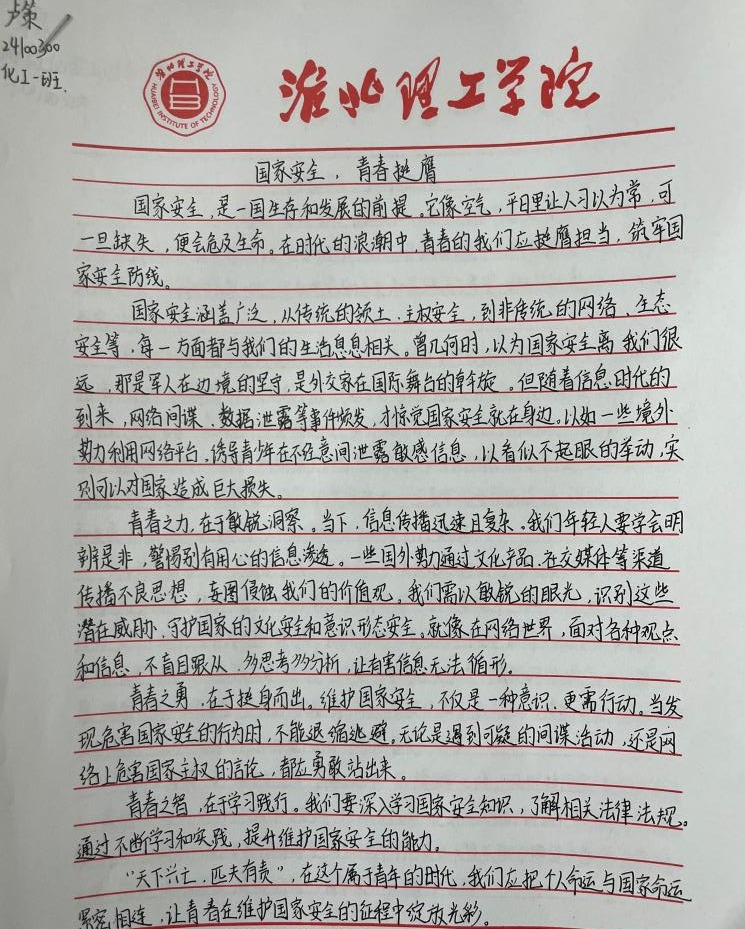 卢策
24100300
化工一班.
淮北理工学院
HUAIBEI INSTITUTE OF TECHNOLOGY
国家安全，青春挺膺
国家安全，是一国生存和发展的前提。它像空气，平日里让人习以为常，可
一旦缺失，便会危及生命。在时代的浪潮中，青春的我们应挺膺担当，筑牢国
家安全防线。
国家安全涵盖广泛，从传统的领土、主权安全，到非传统的网络、生态
安全等，每一方面都与我们的生活息息相关。曾几何时，以为国家安全离我们很
远，那是军人在边境的坚守，是外交家在国际舞台的斡旋。但随着信息时代的
到来，网络间谍、数据泄露等事件频发，才惊觉国家安全就在身边。以如一些境外
势力利用网络平台，诱导青少年在不经意间泄露敏感信息，以看似不起眼的举动，实
则可以对国家造成巨大损失。
青春之力，在于敏锐洞察。当下，信息传播迅速且复杂。我们年轻人要学会明
辨是非，警惕别有用心的信息渗透。一些国外势力通过文化产品、社交媒体等渠道
传播不良思想，妄图侵蚀我们的价值观。我们需以敏锐的眼光，识别这些
潜在威胁，守护国家的文化安全和意识形态安全。就像在网络世界，面对各种观点
和信息，不盲目跟从，多思考多分析，让有害信息无法循形。
青春之勇，在于挺身而出。维护国家安全，不仅是一种意识，更需行动。当发
现危害国家安全的行为时，不能退缩逃避。无论是遇到可疑的间谍活动，还是网
络上危害国家主权的言论，都应勇敢站出来。
青春之智，在于学习践行。我们要深入学习国家安全知识，了解相关法律法规。
通过不断学习和实践，提升维护国家安全的能力。
“天下兴亡，匹夫有责”，在这个属于青年的时代，我们应把个人命运与国家命运
紧密相连，让青春在维护国家安全的征程中绽放光彩。